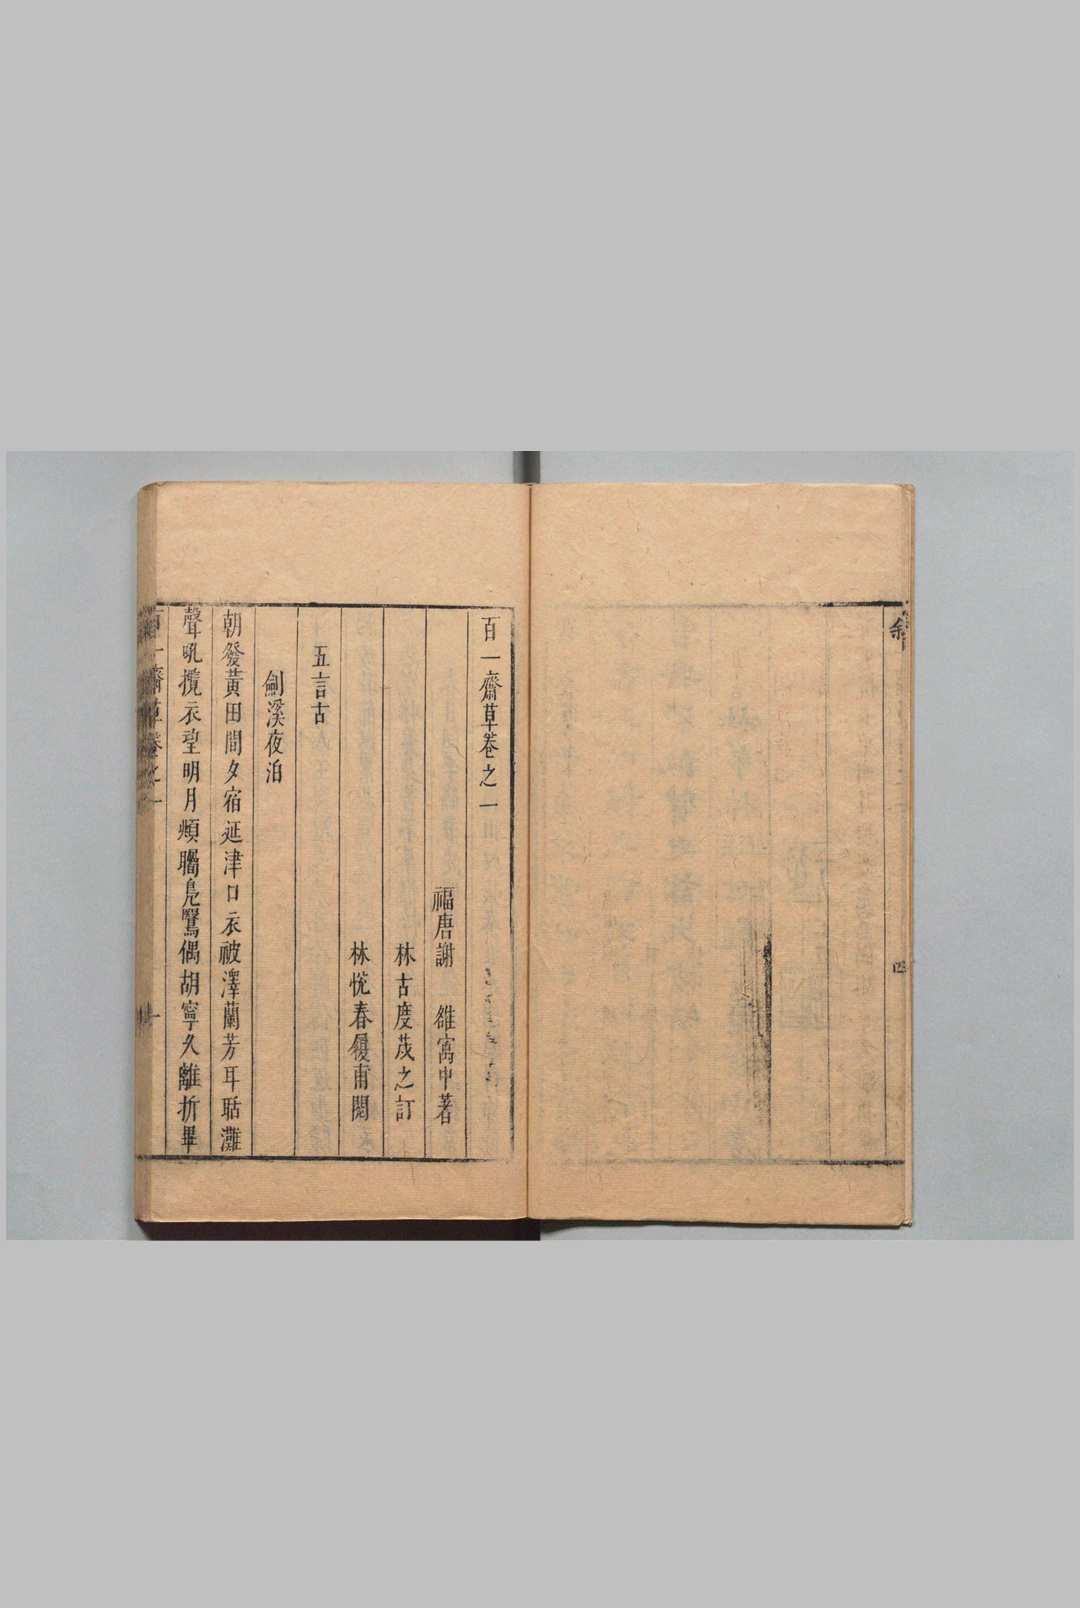 敘
四
百一齋草卷之一
福唐謝 雒寓中著
林古度茂之訂
林恱春履甫閱
五言古
劍溪夜泊
朝發黃田間夕宿延津口衣被澤蘭芳耳聒灘
聲吼攬衣望明月頻矚鳧鷖偶胡寧久離折畢
百一齋草卷之一
一